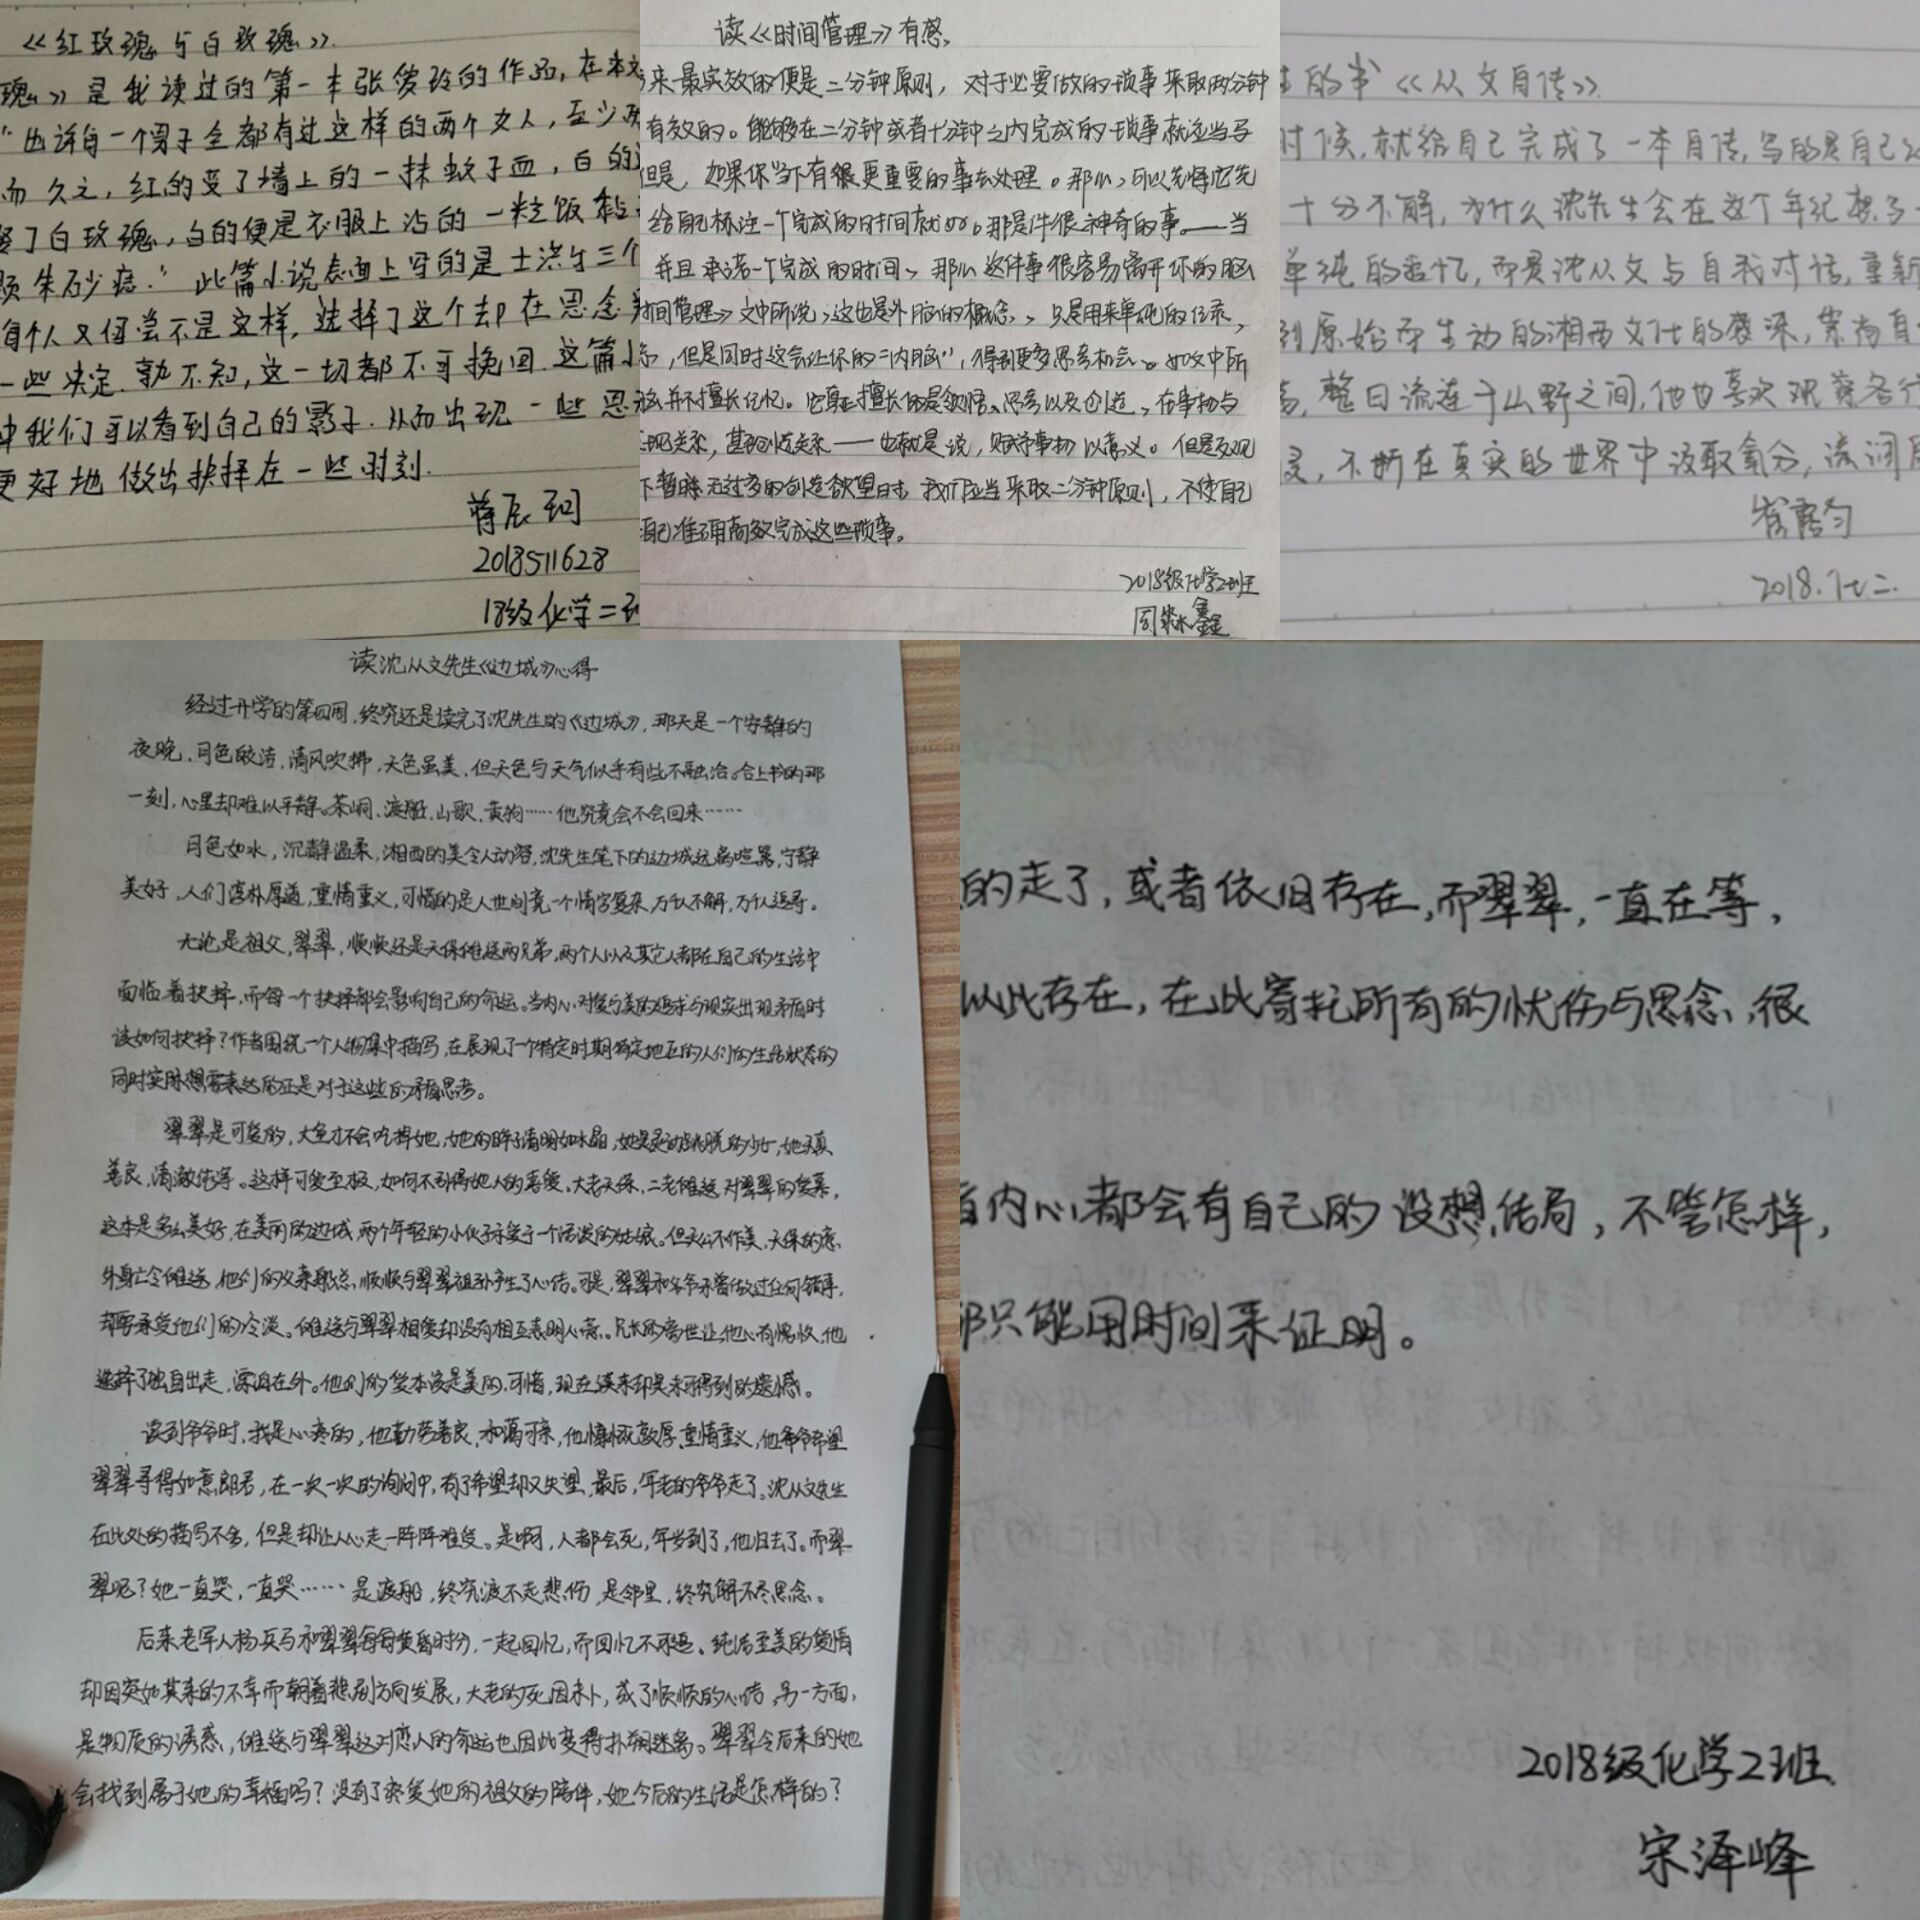 《红玫瑰与白玫瑰》.
瑰》是我读过的第一本张爱玲的作品,在本文
"也许每一个男子全都有过这样的两个女人,至少两
而久之,红的变了墙上的一抹蚊子血,白的
娶了白玫瑰,白的便是衣服上沾的一粒饭黏
颗朱砂痣."此篇小说表面上写的是士洪与三个
每个人又何尝不是这样,选择了这个却在思念
一些决定.孰不知,这一切都不可挽回.这篇小
中我们可以看到自己的影子.从而出现一些思
更好地做出抉择在一些时刻.
蒋辰珂
2018511628
18级化学二班
读《时间管理》有感
来最实效的便是二分钟原则,对于必要做的琐事采取两分钟
有效的。能够在二分钟或者十分钟之内完成的琐事就应当马
但是,如果你当下有很更重要的事去处理。那么,可以先将它先
给自己标注一个完成的时间就OK。那是件很神奇的事。——当
并且承诺一个完成的时间,那么这件事很容易离开你的脑
时间管理》文中所说,这也是外脑的概念,只是用来单纯的记录,
,但是同时这会让你的"内脑",得到更多思考机会。如文中所
脑并不擅长记忆。它真正擅长的是领悟、思考以及创造,在事物与
现关系,甚至创造关系——也就是说,赋予事物以意义。但是反观
下暂时无过多的创造欲望时,我们应当采取二分钟原则,不使自己
自己准确高效完成这些琐事。
2018级化学2班
周 鑫
的书《从文自传》.
时候,就给自己完成了一本自传,写的是自己20
十分不解,为什么沈先生会在这个年纪想写
单纯的追忆,而是沈从文与自我对话,重新
到原始而生动的湘西文化的感染,崇尚自
,整日流连于山野之间,他也喜欢观察各行
,不断在真实的世界中汲取氧分,滋润
2018.化二.
读沈从文先生《边城》心得
经过开学的第四周,终究还是读完了沈先生的《边城》,那天是一个安静的
夜晚,月色皎洁,清风吹拂,天色虽美,但天色与天气似乎有些不融洽。合上书的那
一刻,心里却难以平静。茶峒、渡船、山歌、黄狗……他究竟会不会回来……
月色如水,沉静温柔,湘西的美令人动容,沈先生笔下的边城远离喧嚣,宁静
美好,人们淳朴厚道,重情重义,可惜的是人世间竟一个情字复杂,万千人不解,万千人追寻。
无论是祖父,翠翠,顺顺还是天保傩送两兄弟,两个人以及其它人都在自己的生活中
面临着抉择,而每一个抉择都会影响自己的命运。当内心对爱与美的追求与现实出现矛盾时
该如何抉择?作者围绕一个人物集中描写,在展现了一个特定时期特定地区的人们的生活状态的
同时实际想要表达的正是对于这些的矛盾思考。
翠翠是可爱的,大鱼才不会吃掉她,她的眸子清明如水晶,她是灵动活脱的少女,她天真
善良,清澈纯净。这样可爱至极,如何不引得她人的喜爱、大老天保、二老傩送对翠翠的爱慕,
这本是多么美好,在美丽的边城,两个年轻的小伙子求爱于一个活泼的姑娘。但天公不作美,天保的意
外身亡令傩送,他们的父亲船总,顺顺与翠翠祖孙产生了心结。可是,翠翠和爷爷不曾做过任何错事,
却要承受他们的冷淡。傩送与翠翠相爱却没有相互表明心意。兄长的离世让他心有愧疚,他
选择了独自出走,漂泊在外。他们的爱本该是美的,可惜,现在读来却是未可得到的遗憾。
读到爷爷时,我是心疼的,他勤劳善良,和蔼可亲,他慷慨敦厚,重情重义,他希希希望
翠翠寻得如意郎君,在一次一次的询问中,有了希望却又失望,最后,年老的爷爷走了。沈从文先生
在此处的描写不多,但是却让人心走一阵阵难受。是啊,人都会死,年岁到了,他归去了。而翠
翠呢?她一直哭,一直哭……是渡船,终究渡不走悲伤,是邻里,终究解不尽思念。
后来老军人杨兵马和翠翠每每黄昏时分,一起回忆,而回忆不可追。纯洁至美的爱情
却因突如其来的不幸而朝着悲剧方向发展,大老的死因未卜,成了顺顺的心结,另一方面,
是物质的诱惑,傩送与翠翠这对恋人的命运也因此变得扑朔迷离。翠翠今后来的她
会找到属于她的幸福吗?没有了疼爱她的祖父的陪伴,她今后的生活是怎样的?
的走了,或者依旧存在,而翠翠,一直在等,
以此存在,在此寄托所有的忧伤与思念,很
内心都会有自己的设想结局,不管怎样,
那只能用时间来证明。
2018级化学2班.
宋泽峰